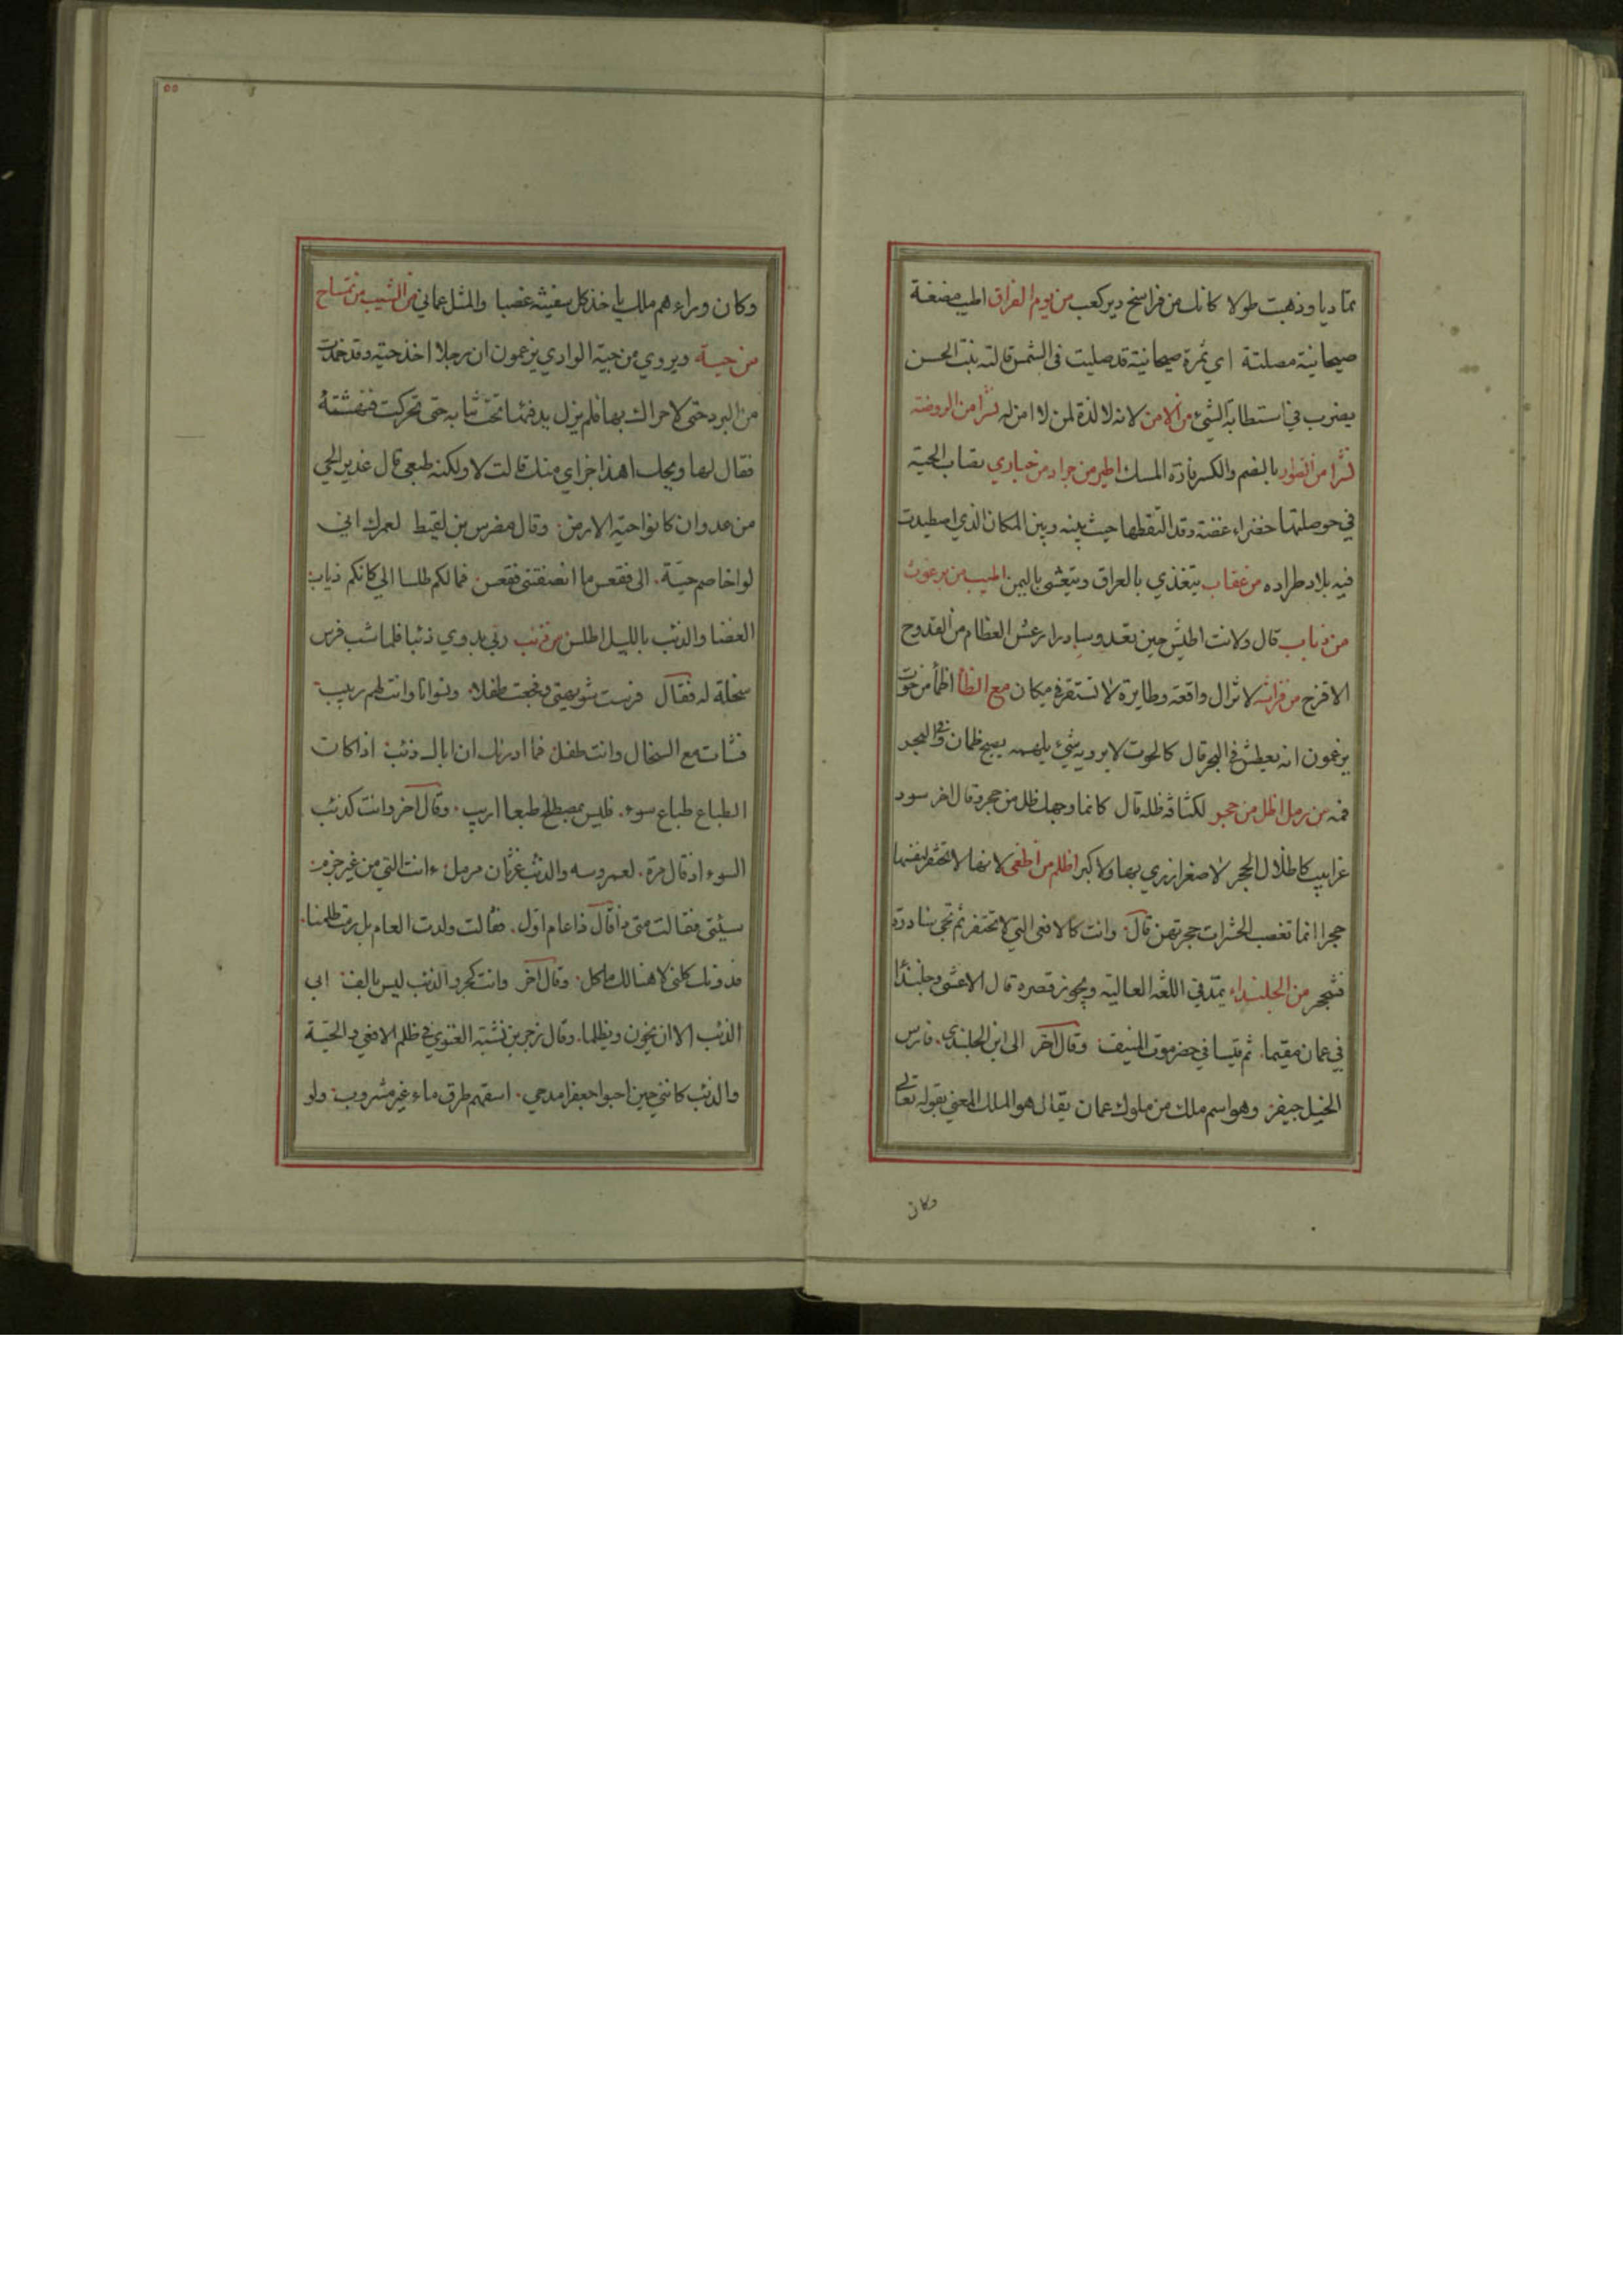 تماديا وذهبت طولا كانك من فراسخ دير كعب من يوم الفراق اطيب مضغة
صيحانية مصلتة اي ثمرة صيحانية قد صليت في الشمس قالته بنت الحسن
يضرب في استطابة الشئ من الامن لانه لا لذة لمن لا امن له نشرا من الروضة
نشرا من الصوار بالضم والكسر فارة المسك اطير من جراد من حباري يصاب الحبة
في حوصلتها خضراء غضة وقد التقطها حيث بينه وبين المكان الذي اصطيدت
فيه بلاد طراده من عقاب يتغذي بالعراق ويتعشى باليمن اطيب من برغوث
من ذباب قال ولانت اطيش حين تغدو سادرا رعش العظام من القدوح
الاقرح من فراشة لا تزال واقعة وطايرة لا تستقر في مكان مع الظأ اظمأ من حوت
يزعمون انه يعطش في البحر قال كالحوت لا يرويه شئ يلهمه يصبح ظمان وفي البحر
فمه من رمل اظل من حجر لكثافة ظله قال كانما وجهك ظل من حجر وقال اخر سود
غرابيب كاطلال الحجر لا صغر ازري بها ولا كبر اظلم من افعى لانها لا تحتفر لنفسها
حجرا انما تغصب الحشرات حجرتهن قال وانت كالافعى التي لا تحتفر ثم تجي سادرة
فتجحر من الجلنداء يمد في اللغة العالية ويجوز قصره قال الاعشى وجلنداء
في عمان مقيما ثم قيسا في حضرموت المنيف وقال اخر الى ابن الجلندى فارس
الخيل جيفر وهو اسم ملك من ملوك عمان يقال هو الملك المعني بقوله تعالى
وكان
٥٥
وكان وراءهم ملك ياخذ كل سفينة غصبا والمثل عماني من الشيب من تمساح
من حية ويروي من حية الوادي يزعمون ان رجلا اخذ حية وقد خمدت
من البرد حتى لا حراك بها فلم يزل يدفئها تحت ثيابه حتى تحركت فنهشته
فقال لها ويحك اهذا جزاي منك قالت لا ولكنه طبعي قال غدير الحي
من عدوان كانوا حية الارض وقال مضرس بن لقيط لعمرك اني
لو اخاصم حية الى فقعس ما انصفتني فقعس فما لكم طلسا الي كانكم ذياب
الغضا والذئب بالليل اطلس من ذئب ربى بدوي ذئبا فلما شب فرس
سخلة له فقال فرست شويهتي وفجعت طفلا ونسوانا وانت لهم ربيب
نشات مع السخال وانت طفل فما ادرك ان اباك ذئب اذا كان
الطباع طباع سوء فليس بمصطلح طبعا اريب وقال اخر وانت كذئب
السوء اذ قال مرة لعمروسه والذئب غرثان مرمل ءانت التي من غير جرم
سئتني فقالت متى ذا قال ذا عام اول فقالت ولدت العام بل رمت ظلمنا
فدونك كلني لا هنالك ماكل وقال اخر وانت كجرو الذئب ليس بالف ابي
الذئب الا ان يخون ويظلما وقال زجر بن نشبة الغنوي في ظلم الافعي والحية
والذئب كانني حين احبوا جعفرا مدحي اسقيهم طرق ماء غير مشروب ولو